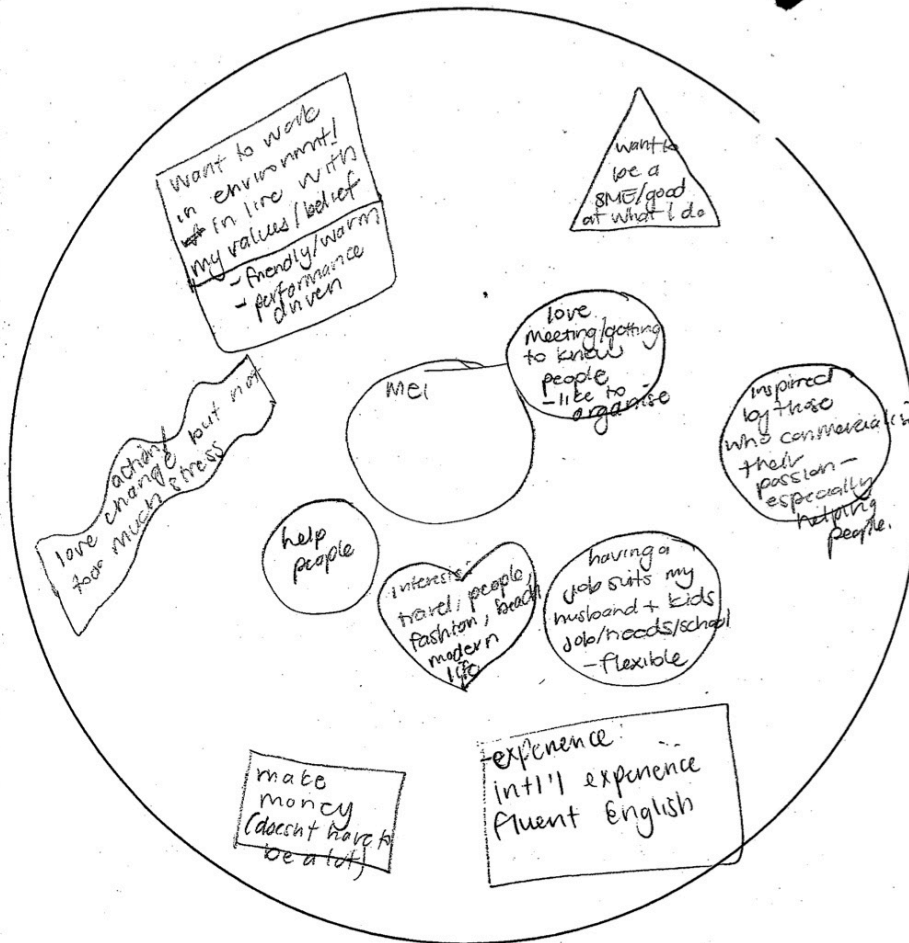 want to work
in environmnt!
in line with
my values/belief
- friendly/warm
- performance
driven
want to
be a
SME/good
at what I do
love
meeting/getting
to know
people
- like to
organise
ME!
inspired
by those
who commercialise
their
passion -
especially
helping
people.
action!
love change but not
too much stress
help
people
interests:
travel, people,
fashion, beach
modern
life
having a
job suits my
husband + kids
job/needs/school
- flexible
make
money
(doesnt have to
be a lot)
- experience:
intl'l experience
fluent English